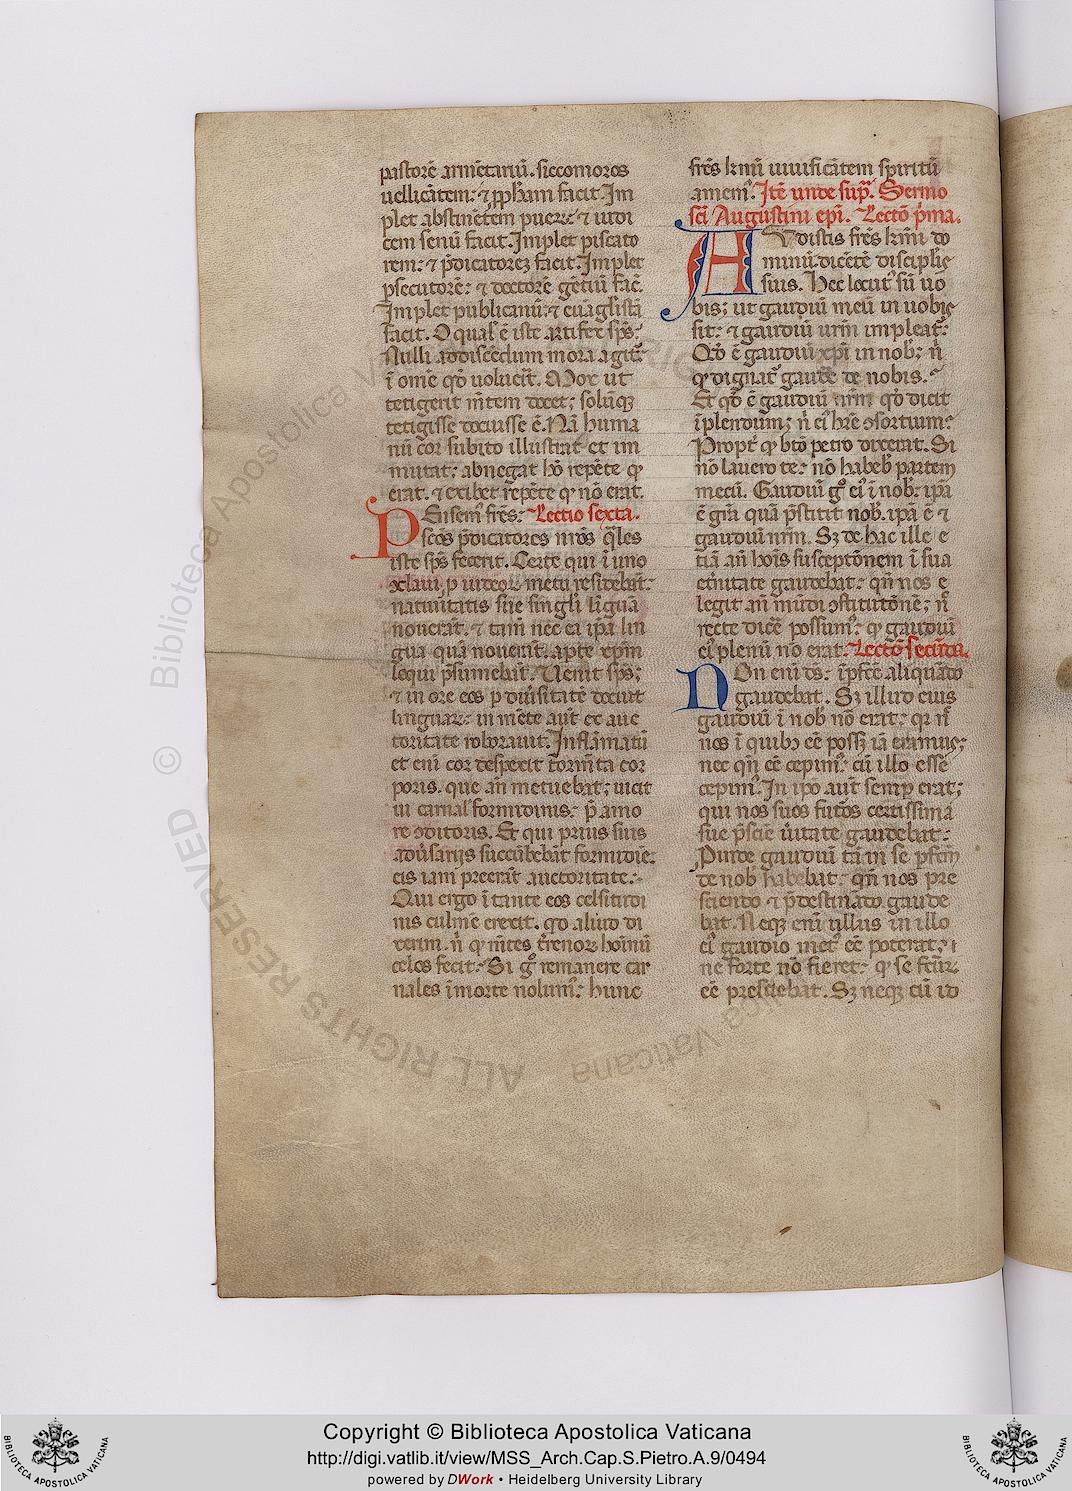 pastorē armētariū. siccomoros
uellicātem: ⁊ ꝓph̄am facit. Im
plet abstinētem puerū: ⁊ iudi
cem senū facit. Implet piscato
rem: ⁊ p̄dicatorez facit. Implet
ꝑsecutorē: ⁊ doctorē gētiū fac̄.
Implet publicanū: ⁊ euāgl̓istā
facit. O qual̓ ē iste artifex sp̄s:
Nulli addiscēdum mora agit᷑:
ī om̄e qd̓ uoluerit. Mox ut
tetigerit m̄tem docet; solūqꝫ
tetigisse docuisse ē. Nā huma
nū cor subito illustrat et im
mutat: abnegat hō repēte qd̓
erat. ⁊ exibet repēte qd̓ nō erat.
PEnsem᷒ fr̄es: Lectio sexta.
sc̄os p̄dicatores nr̄os q̄les
iste sp̄s fecerit. Certe qui ī uno
ↄclaui ꝓ iudeoꝝ metu residebāt:
natiuitatis sue singl̓i līguā
nouerāt. ⁊ tam̄ nec ea ip̄a lin
gua quā nouerāt. aꝑte xp̄m
loqui p̄sumebāt. Uenit sp̄s;
⁊ in ore eos ꝓ diūsitatē docuit
linguaꝝ: in mēte aut̄ ex auc
toritate roborauit. Inflāmatū
et enī cor despexit torm̄ta cor
poris. que an̄ metuebat; uicit
ui carnal̓ formidinis: p̄ amo
re ↄditoris. Et qui prius suis
adūsarijs succūbebāt formidīe:
eis iam preerāt auctoritate:
Qui ergo ītante eos celsitudi
nis culmīe erexit. qd̓ aliud di
xerim. n̄ qd̓ mētes t̄renoꝝ hoīnū
celos fecit: Si gͦ remanere car
nales ī morte nolum᷒: hunc
fr̄es kmī uiuificātem spiritū
amem᷒. Itē unde sup̄. Sermo
sc̄i Augustini epī. Lectō p̄ma.
AUdistis fr̄es kmī do
minū dicētē discipulis
suis. Hec locut᷒ sū uo
bis; ut gaudiū meū in uobis
sit: ⁊ gaudiū ur̄m impleat᷑:
Qd̓ ē gaudiū xp̄i in nob̓; n̄
qd̓ dignat᷑ gaudē de nobis.
Et qd̓ ē gaudiū nr̄m qd̓ dicit
īplendum; n̄ ei᷒ hr̄e ↄsortium:
Propt̓ qd̓ btō petro dixerat. Si
nō lauero te: nō habeb̓ partem
mecū. Gaudiū gͦ ei᷒ ī nob̓: ip̄a
ē gr̄a quā p̄stitit nob̓. ip̄a ē ⁊
gaudiū nr̄m. Sꝫ de hac ille e
tiā an̄ hoīs susceptōnem ī sua
et̄nitate gaudebat: qn̄ nos e
legit an̄ mūdi ↄstitutōnē; n̄
recte dicē possum᷒: qd̓ gaudiū
ei᷒ plenū nō erat. Lectō secūda.
NOn enī ds̄: īp̄fcē aliquādo
gaudebat. Sꝫ illud eius
gaudiū ī nob̓ nō erat: qr n̄
nos ī quibꝫ eē possꝫ iā eramus;
nec qn̄ eē cepim᷒: cū illo esse
cepim᷒. In ip̄o aut̄ semꝑ erat;
qui nos suos futōs certissima
sue p̄sciē ūitate gaudebat:
Proinde gaudiū iā in se ꝑfctm̄
de nob̓ habebat: qn̄ nos pre
sciendo ⁊ p̄destinādo gaude
bat. Neqꝫ enī ullus in illo
ei᷒ gaudio met᷒ eē poterat; ⁊
ne forte nō fieret: qd̓ se fctūꝝ
eē presciebat. Sꝫ neqꝫ cū id
© Biblioteca Apostolica Vaticana
ALL RIGHTS RESERVED
BIBLIOTECA APOSTOLICA VATICANA
Copyright © Biblioteca Apostolica Vaticana
http://digi.vatlib.it/view/MSS_Arch.Cap.S.Pietro.A.9/0494
powered by DWork • Heidelberg University Library
BIBLIOTECA APOSTOLICA VATICANA